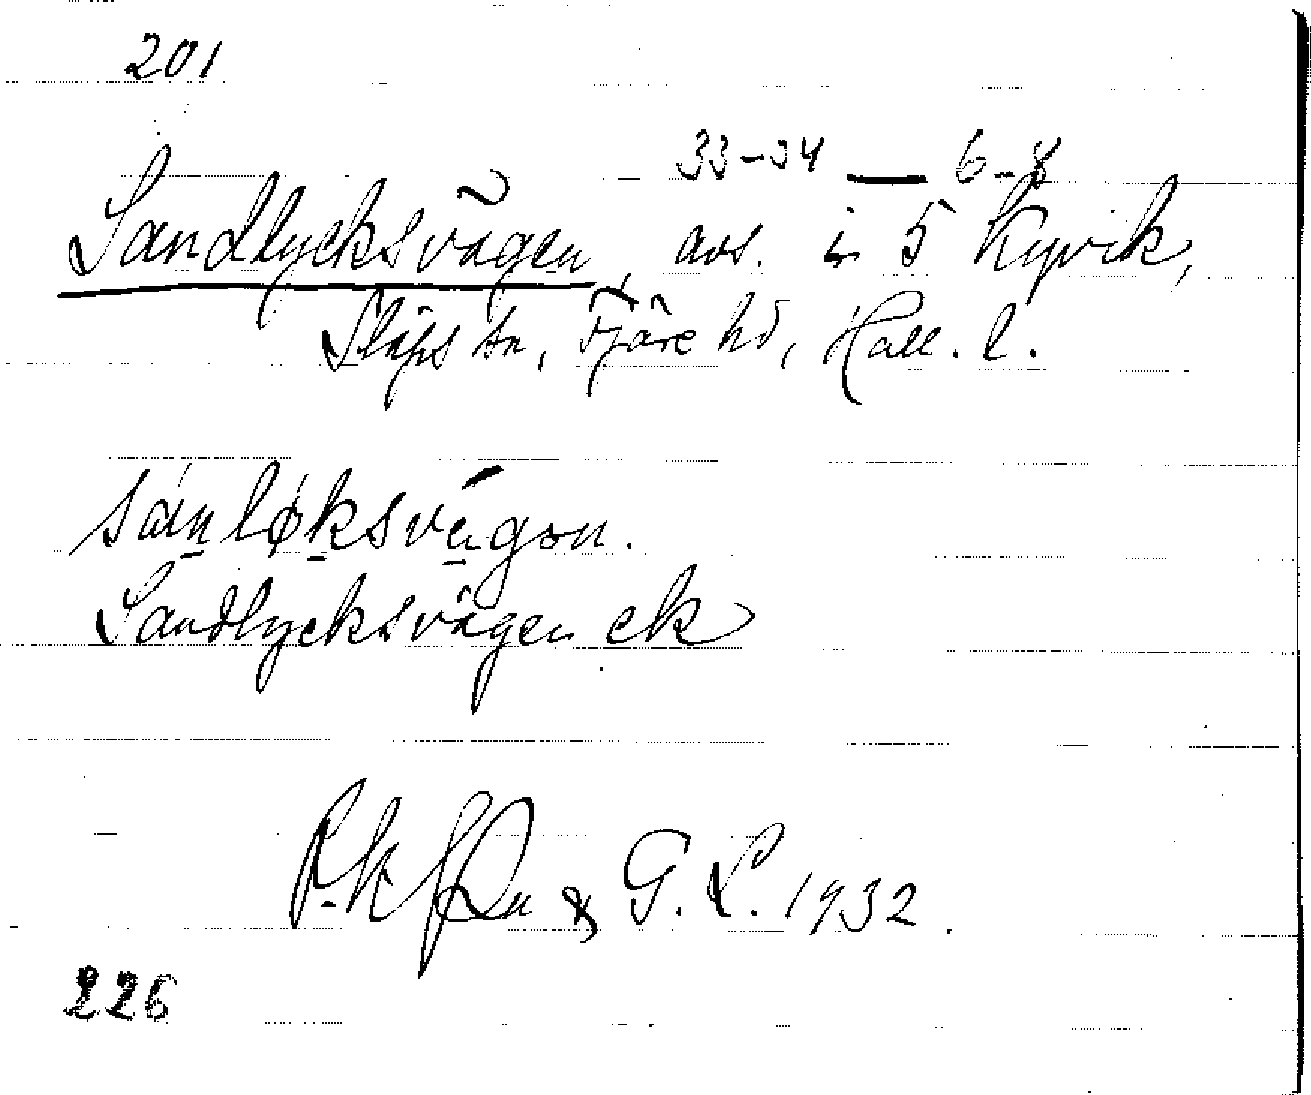 201
33-34 — 6-8
Sandlycksvägen, avs. i 5 Kyvik,
Släps sn, Fjäre hd, Hall. l.
sanløksvägǝn.
Sandlycksvägen ek
& G. L. 1932.
226